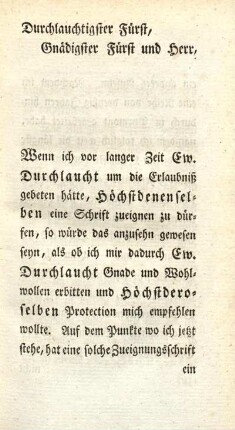 Durchlauchtigster Fürst,
Gnädigster Fürst und Herr,
Wenn ich vor langer Zeit Ew.
Durchlaucht um die Erlaubniß
gebeten hätte, Höchstdenensel-
ben eine Schrift zueignen zu dür-
fen, so würde das anzusehn gewesen
seyn, als ob ich mir dadurch Ew.
Durchlaucht Gnade und Wohl-
wollen erbitten und Höchstdero-
selben Protection mich empfehlen
wollte. Auf dem Punkte wo ich jetzt
stehe, hat eine solche Zueignungsschrift
ein